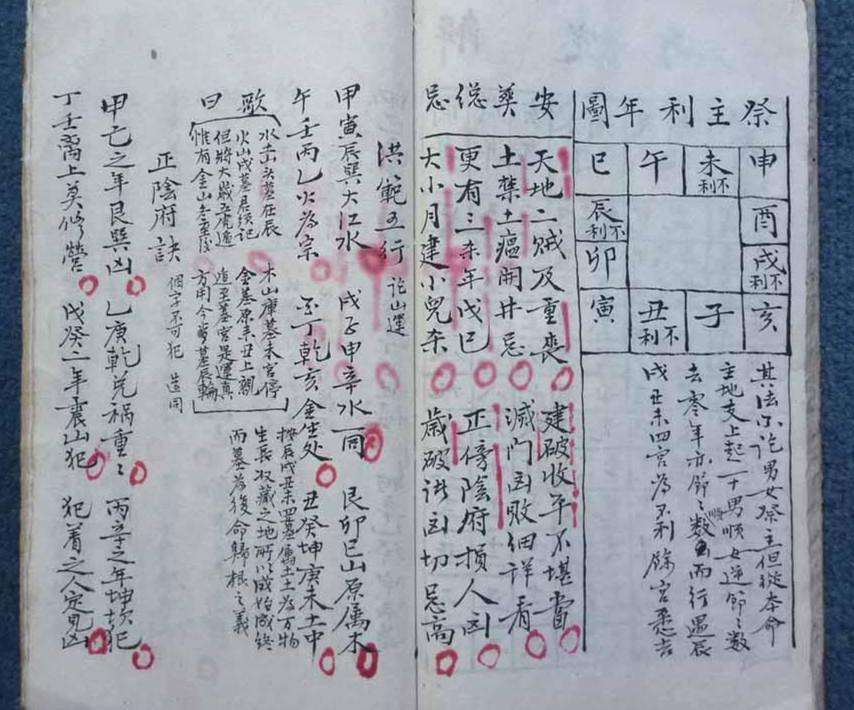 祭主利年圖
申
酉
戌不利
亥
未不利
子
午
丑不利
巳
辰不利
卯
寅
其法不論男女祭主但從本命
主地支上起一十男順女逆節〻數
去零年亦節〻數順而行遇辰
戌丑未四宮為不利餘宮悉吉
安葬総忌
天地二賊及重喪 建破收平不堪當
土禁土瘟開井忌 滅門凶敗細詳看
更有三杀年戊巳 正傍陰府損人凶
大小月建小兒杀 歲破諸凶切忌高
洪範五行 論山運
甲寅辰巽大江水 戌子申辛水一同 艮卯巳山原属木
午壬丙乙火為宗 丁乾亥金生处 丑癸坤庚未土中
歌曰
水土山头墓在辰 木山庫墓未宮停
火山戌墓君須記 金墓原來丑上親
但將大歲五虎遁 追至墓宮是運真
惟有金山冬至後 方用今歲墓辰輪
按辰戌丑未四墓属土土為万物
生長收藏之地所以成始成終
而墓為復命歸根之義
正陰府訣 個字不可犯 造同
甲己之年艮巽凶 乙庚乾兌禍重〻 丙辛之年坤坎犯
丁壬离上莫修營 戊癸二年震山犯 犯着之人定見凶